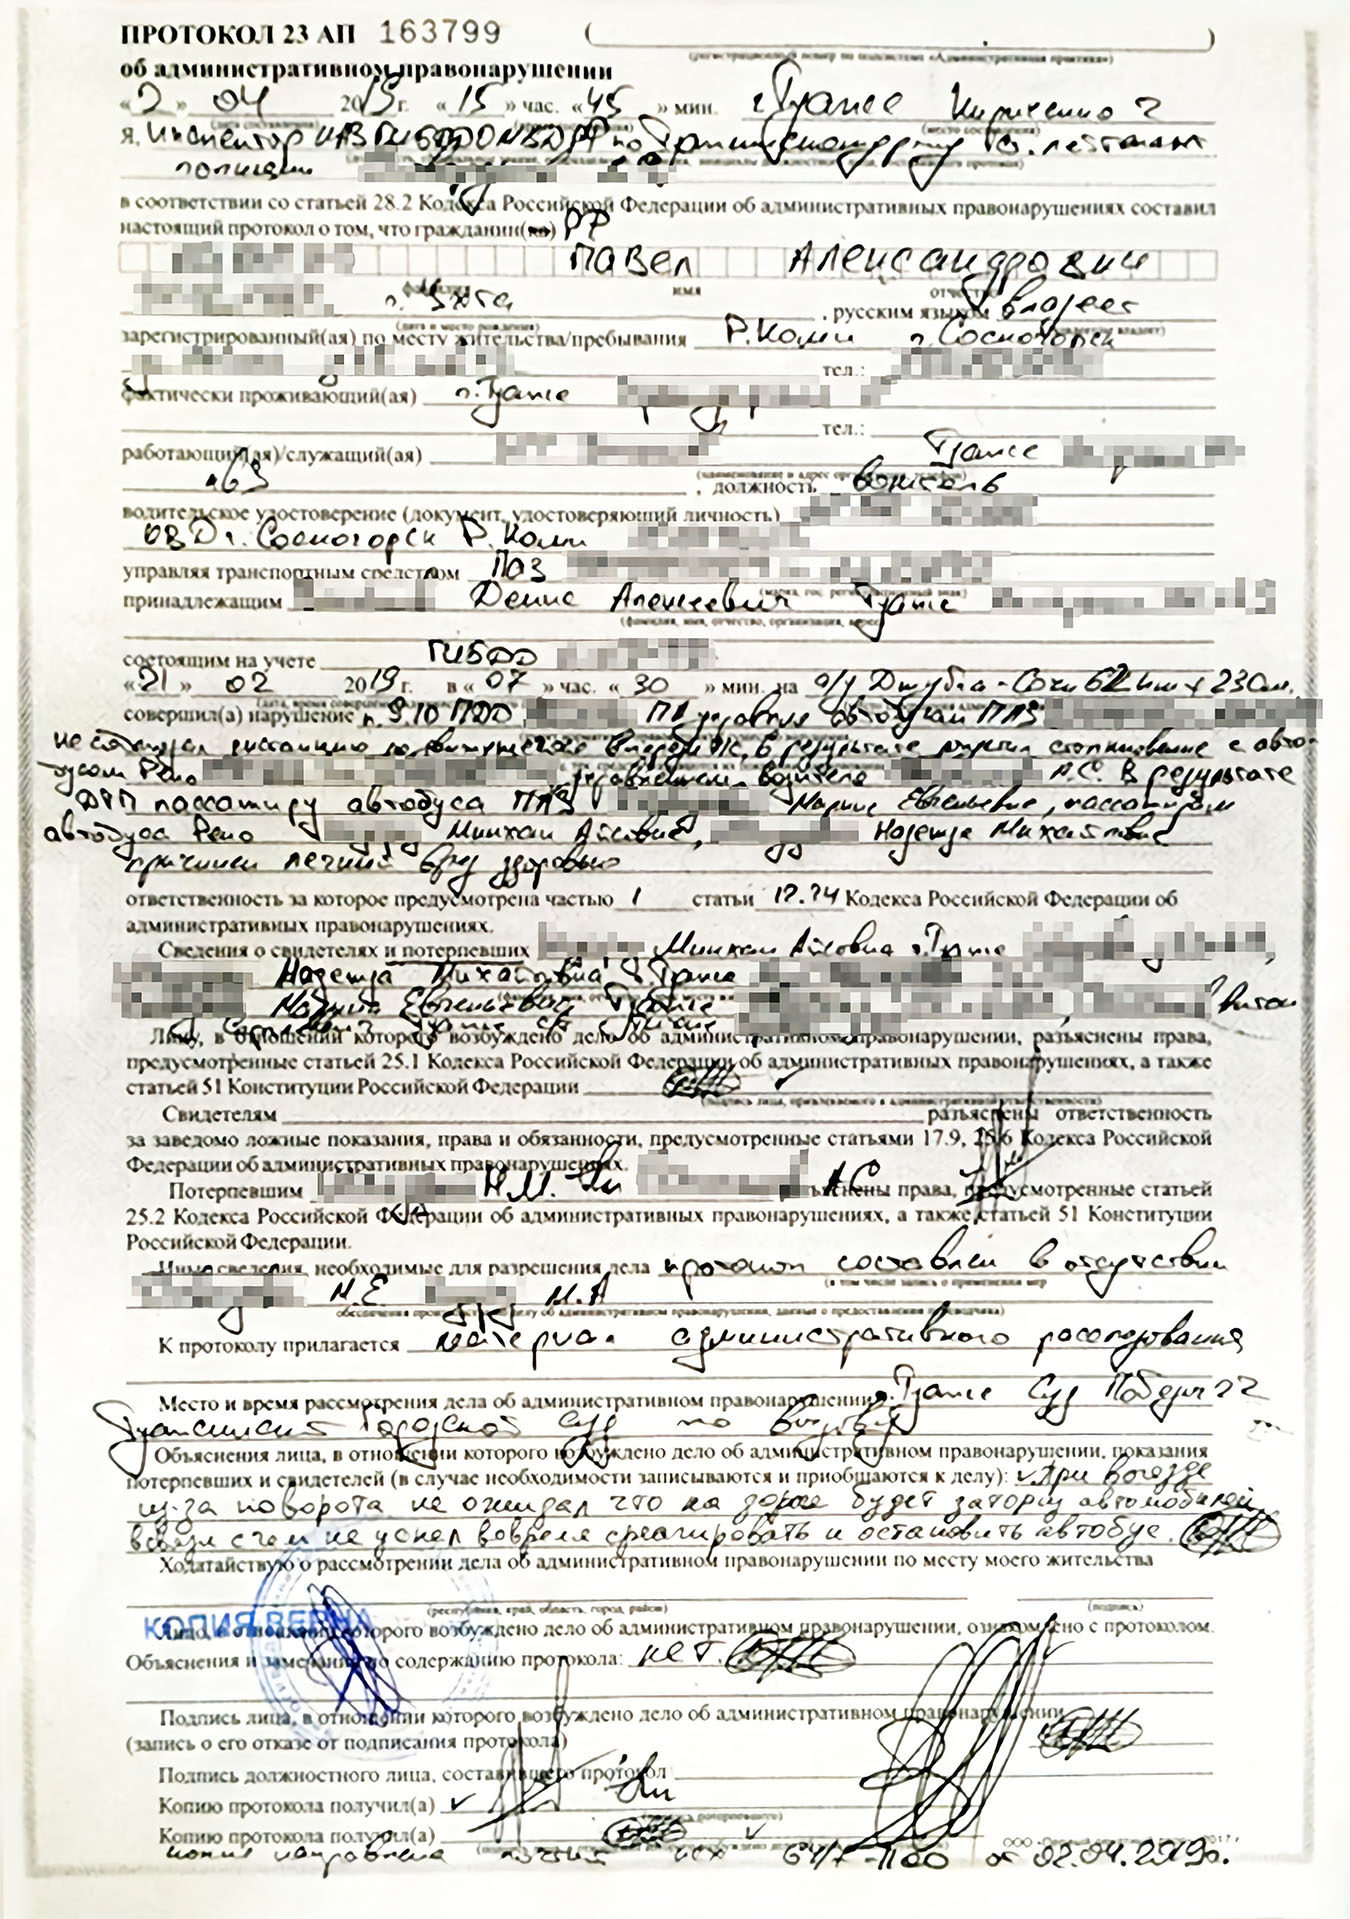 ПРОТОКОЛ 23 АП 163799 ( )
(регистрационный номер по подсистеме «Административная практика»)
об административном правонарушении
«2» 04 2019 г. «15» час. «45» мин. г. Туапсе Кириченко 2
Я, Инспектор ИАЗ ОМВД РФ по Туапсинскому р-ну ст. лейтенант
полиции
в соответствии со статьей 28.2 Кодекса Российской Федерации об административных правонарушениях составил
настоящий протокол о том, что гражданин(ка) РФ
ПАВЕЛ АЛЕКСАНДРОВИЧ
фамилия имя отчество
г. Ухта , русским языком владеет
(дата и место рождения)
зарегистрированный(ая) по месту жительства/пребывания Р. Коми г. Сосногорск
тел.:
фактически проживающий(ая) г. Туапсе
тел.:
работающий(ая)/служащий(ая) Туапсе
, должность водитель
водительское удостоверение (документ, удостоверяющий личность)
ОВД г. Сосногорск Р. Коми
управляя транспортным средством ПАЗ
принадлежащим Денис Алексеевич Туапсе
(фамилия, имя, отчество, организация, адрес)
состоящим на учете ГИБДД
«21» 02 2019 г. в «07» час. «30» мин. на а/д Джубга-Сочи 62 км + 230 м.
совершил(а) нарушение п. 9.10 ПДД управляя автобусом ПАЗ
не соблюдал дистанцию до движущегося впереди ТС, в результате допустил столкновение с авто-
бусом Рено управлением водителя А.С. В результате
ДТП пассажиру автобуса ПАЗ Марине Евгеньевне, пассажирам
автобуса Рено Надежде Михайловне
причинен легкий вред здоровью
ответственность за которое предусмотрена частью 1 статьи 12.24 Кодекса Российской Федерации об
административных правонарушениях.
Сведения о свидетелях и потерпевших г. Туапсе
Надежда Михайловна г. Туапсе
Марина Евгеньевна Туапсе
Лицу, в отношении которого возбуждено дело об административном правонарушении, разъяснены права,
предусмотренные статьей 25.1 Кодекса Российской Федерации об административных правонарушениях, а также
статьей 51 Конституции Российской Федерации
(подпись лица, привлекаемого к административной ответственности)
Свидетелям разъяснены ответственность
за заведомо ложные показания, права и обязанности, предусмотренные статьями 17.9, 25.6 Кодекса Российской
Федерации об административных правонарушениях.
Потерпевшим Н.М. А.С разъяснены права, предусмотренные статьей
25.2 Кодекса Российской Федерации об административных правонарушениях, а также статьей 51 Конституции
Российской Федерации.
Иные сведения, необходимые для разрешения дела протокол составлен в отсутствии
(в том числе запись о применении мер
М.Е М.А
К протоколу прилагается материал административного расследования
Место и время рассмотрения дела об административном правонарушении г. Туапсе Суд Победы 22
Туапсинский Городской суд по вызову
Объяснения лица, в отношении которого возбуждено дело об административном правонарушении, показания
потерпевших и свидетелей (в случае необходимости записываются и приобщаются к делу): При выезде
из-за поворота не ожидал что на дороге будет затор из автомобилей
в связи с чем не успел вовремя среагировать и остановить автобус.
Ходатайствую о рассмотрении дела об административном правонарушении по месту моего жительства
(республика, край, область, город, район) (подпись)
КОПИЯ ВЕРНА
Лицо, в отношении которого возбуждено дело об административном правонарушении, ознакомлено с протоколом.
Объяснения и замечания по содержанию протокола: нет.
Подпись лица, в отношении которого возбуждено дело об административном правонарушении
(запись о его отказе от подписания протокола)
Подпись должностного лица, составившего протокол
Копию протокола получил(а)
Копию протокола получил(а)
копия направлена исх 64/7-1100 от 02.04.2019г.